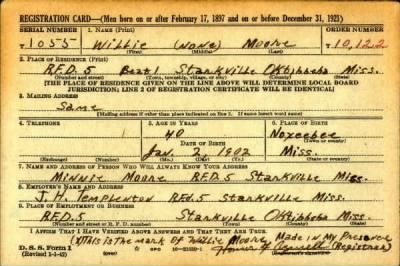 REGISTRATION CARD—(Men born on or after February 17, 1897 and on or before December 31, 1921)
SERIAL NUMBER 1. NAME (Print) ORDER NUMBER
T 1055 Willie (None) Moore T 10,122
(First) (Middle) (Last)
2. PLACE OF RESIDENCE (Print)
RFD. 5 Beat 1 Starkville Oktibbeha Miss.
(Number and street) (Town, township, village, or city) (County) (State)
[THE PLACE OF RESIDENCE GIVEN ON THE LINE ABOVE WILL DETERMINE LOCAL BOARD
JURISDICTION; LINE 2 OF REGISTRATION CERTIFICATE WILL BE IDENTICAL]
3. MAILING ADDRESS
Same
[Mailing address if other than place indicated on line 2. If same insert word same]
4. TELEPHONE 5. AGE IN YEARS 6. PLACE OF BIRTH
40 Noxeebee
DATE OF BIRTH (Town or county)
Jan. 2 1902 Miss.
(Exchange) (Number) (Mo.) (Day) (Yr.) (State or country)
7. NAME AND ADDRESS OF PERSON WHO WILL ALWAYS KNOW YOUR ADDRESS
Minnie Moore RFD. 5 Starkville Miss.
8. EMPLOYER'S NAME AND ADDRESS
J. H. Templenton RFd. 5 Starkville Miss.
9. PLACE OF EMPLOYMENT OR BUSINESS
RFD. 5 Starkville Oktibbeha Miss.
(Number and street or R. F. D. number) (Town) (County) (State)
I AFFIRM THAT I HAVE VERIFIED ABOVE ANSWERS AND THAT THEY ARE TRUE.
(X) This is the mark Of Willie Moore Made in My Presence
D. S. S. Form 1 (Registrar)
(Revised 1-1-42) (over)